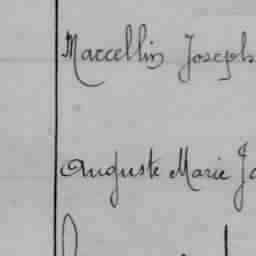 Marcellin Joseph
Auguste Marie